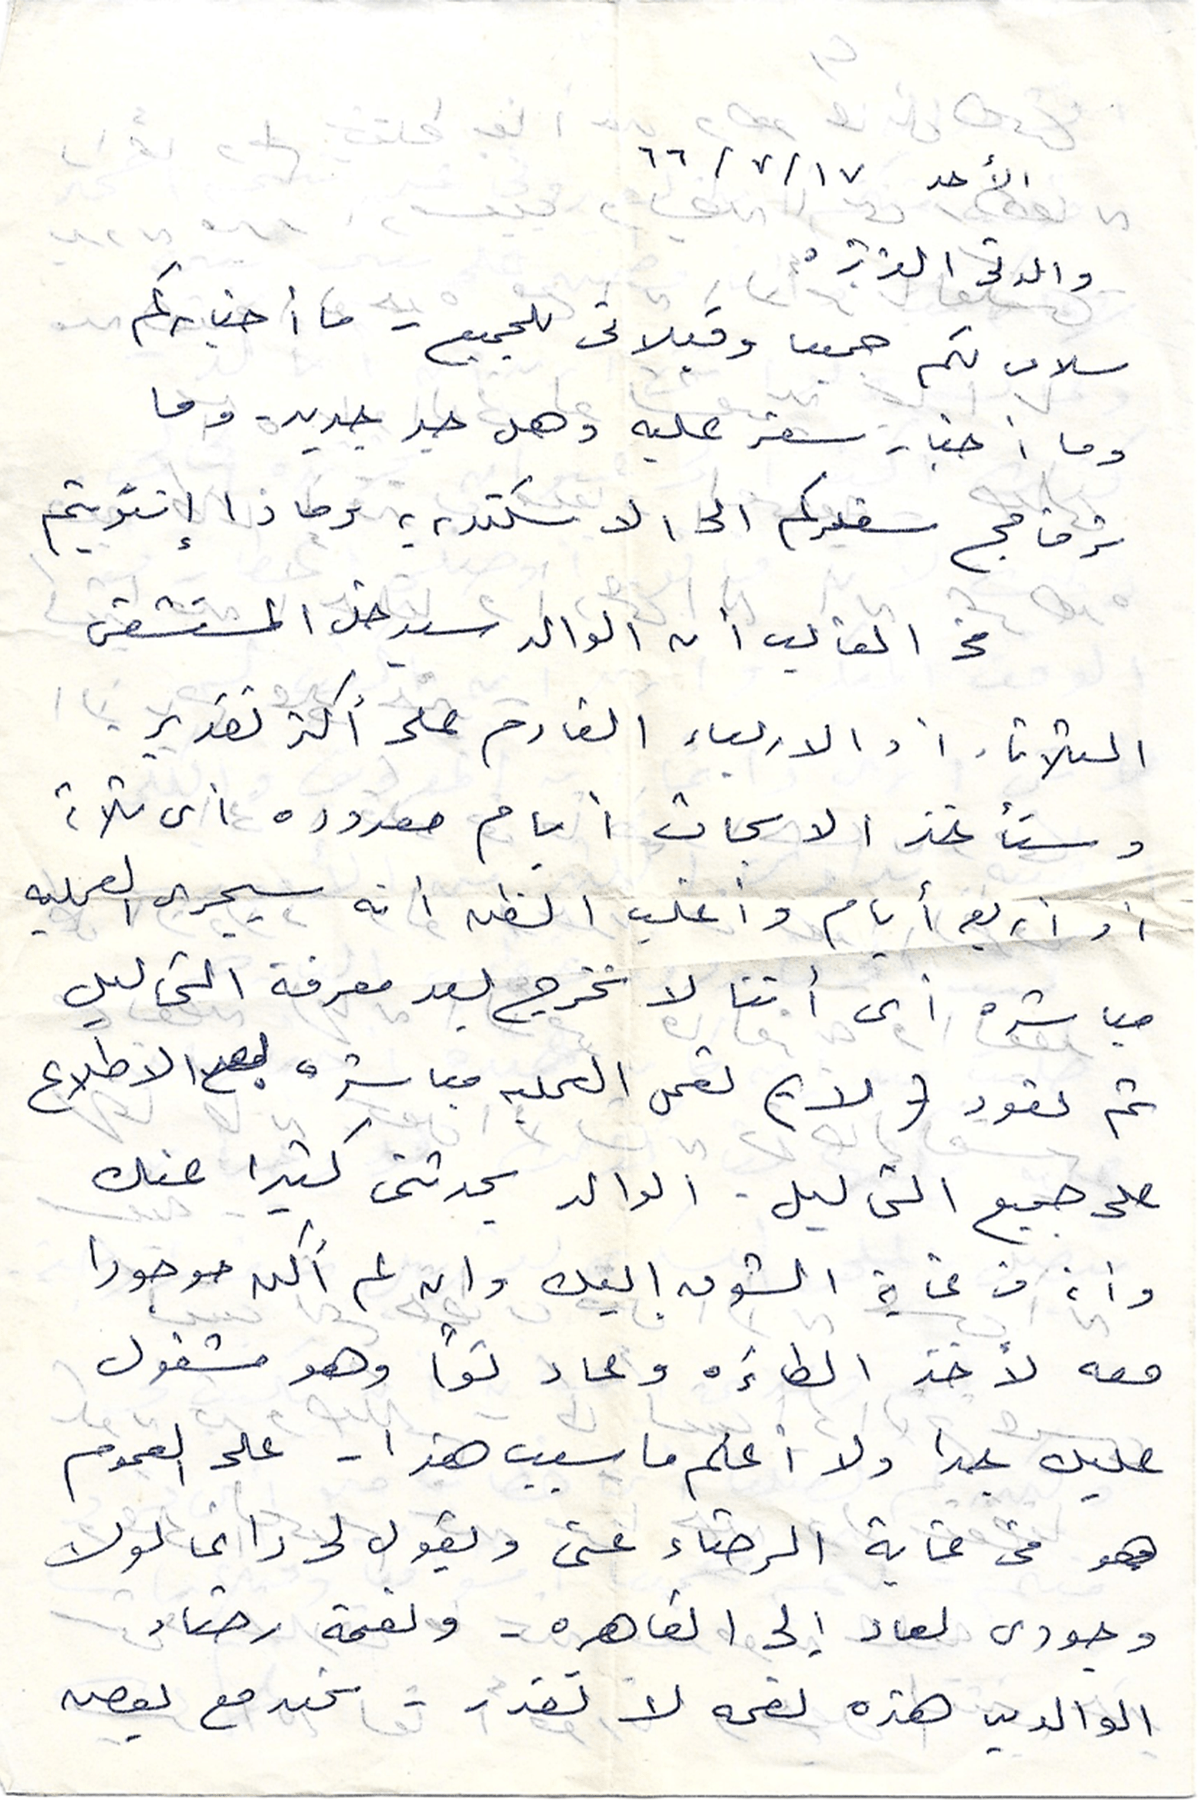 الأحد ١٧/٧/٦٦
والدتى العزيزه
سلامى لكم جميعا وقبلاتى للجميع - ما أخباركم
وما أخبار سفر عليه وهل جد جديد - وما
برنامج سفركم الى الاسكندريه وماذا إنتويتم
فى الغالب أن الوالد سيدخل المستشفى
الثلاثاء أو الاربعاء القادم على أكثر تقدير
وستأخذ الابحاث أيام معدوده أى ثلاثة
أو أربع أيام وأغلب الظن أنه سيجرى العمليه
مباشره أى أننا لا نخرج بعد معرفة التحاليل
ثم نعود ولا تعمل العمليه مباشره بعد الاطلاع
على جميع التحاليل - الوالد يحدثنى كثيرا عنك
وأنه فى غاية الشوق إليك وان لم أكن موجودا
معه لأخذ الطائره وعاد توا وهو مشغول
عليك جدا ولا أعلم ما سبب هذا - على العموم
هو فى غاية الرضاء عنى ويقول لى دائما لولا
وجودى لعاد إلى القاهره - ونعمة رضاء
الوالدين هذه نعمه لا تقدر - نحن مع بعض